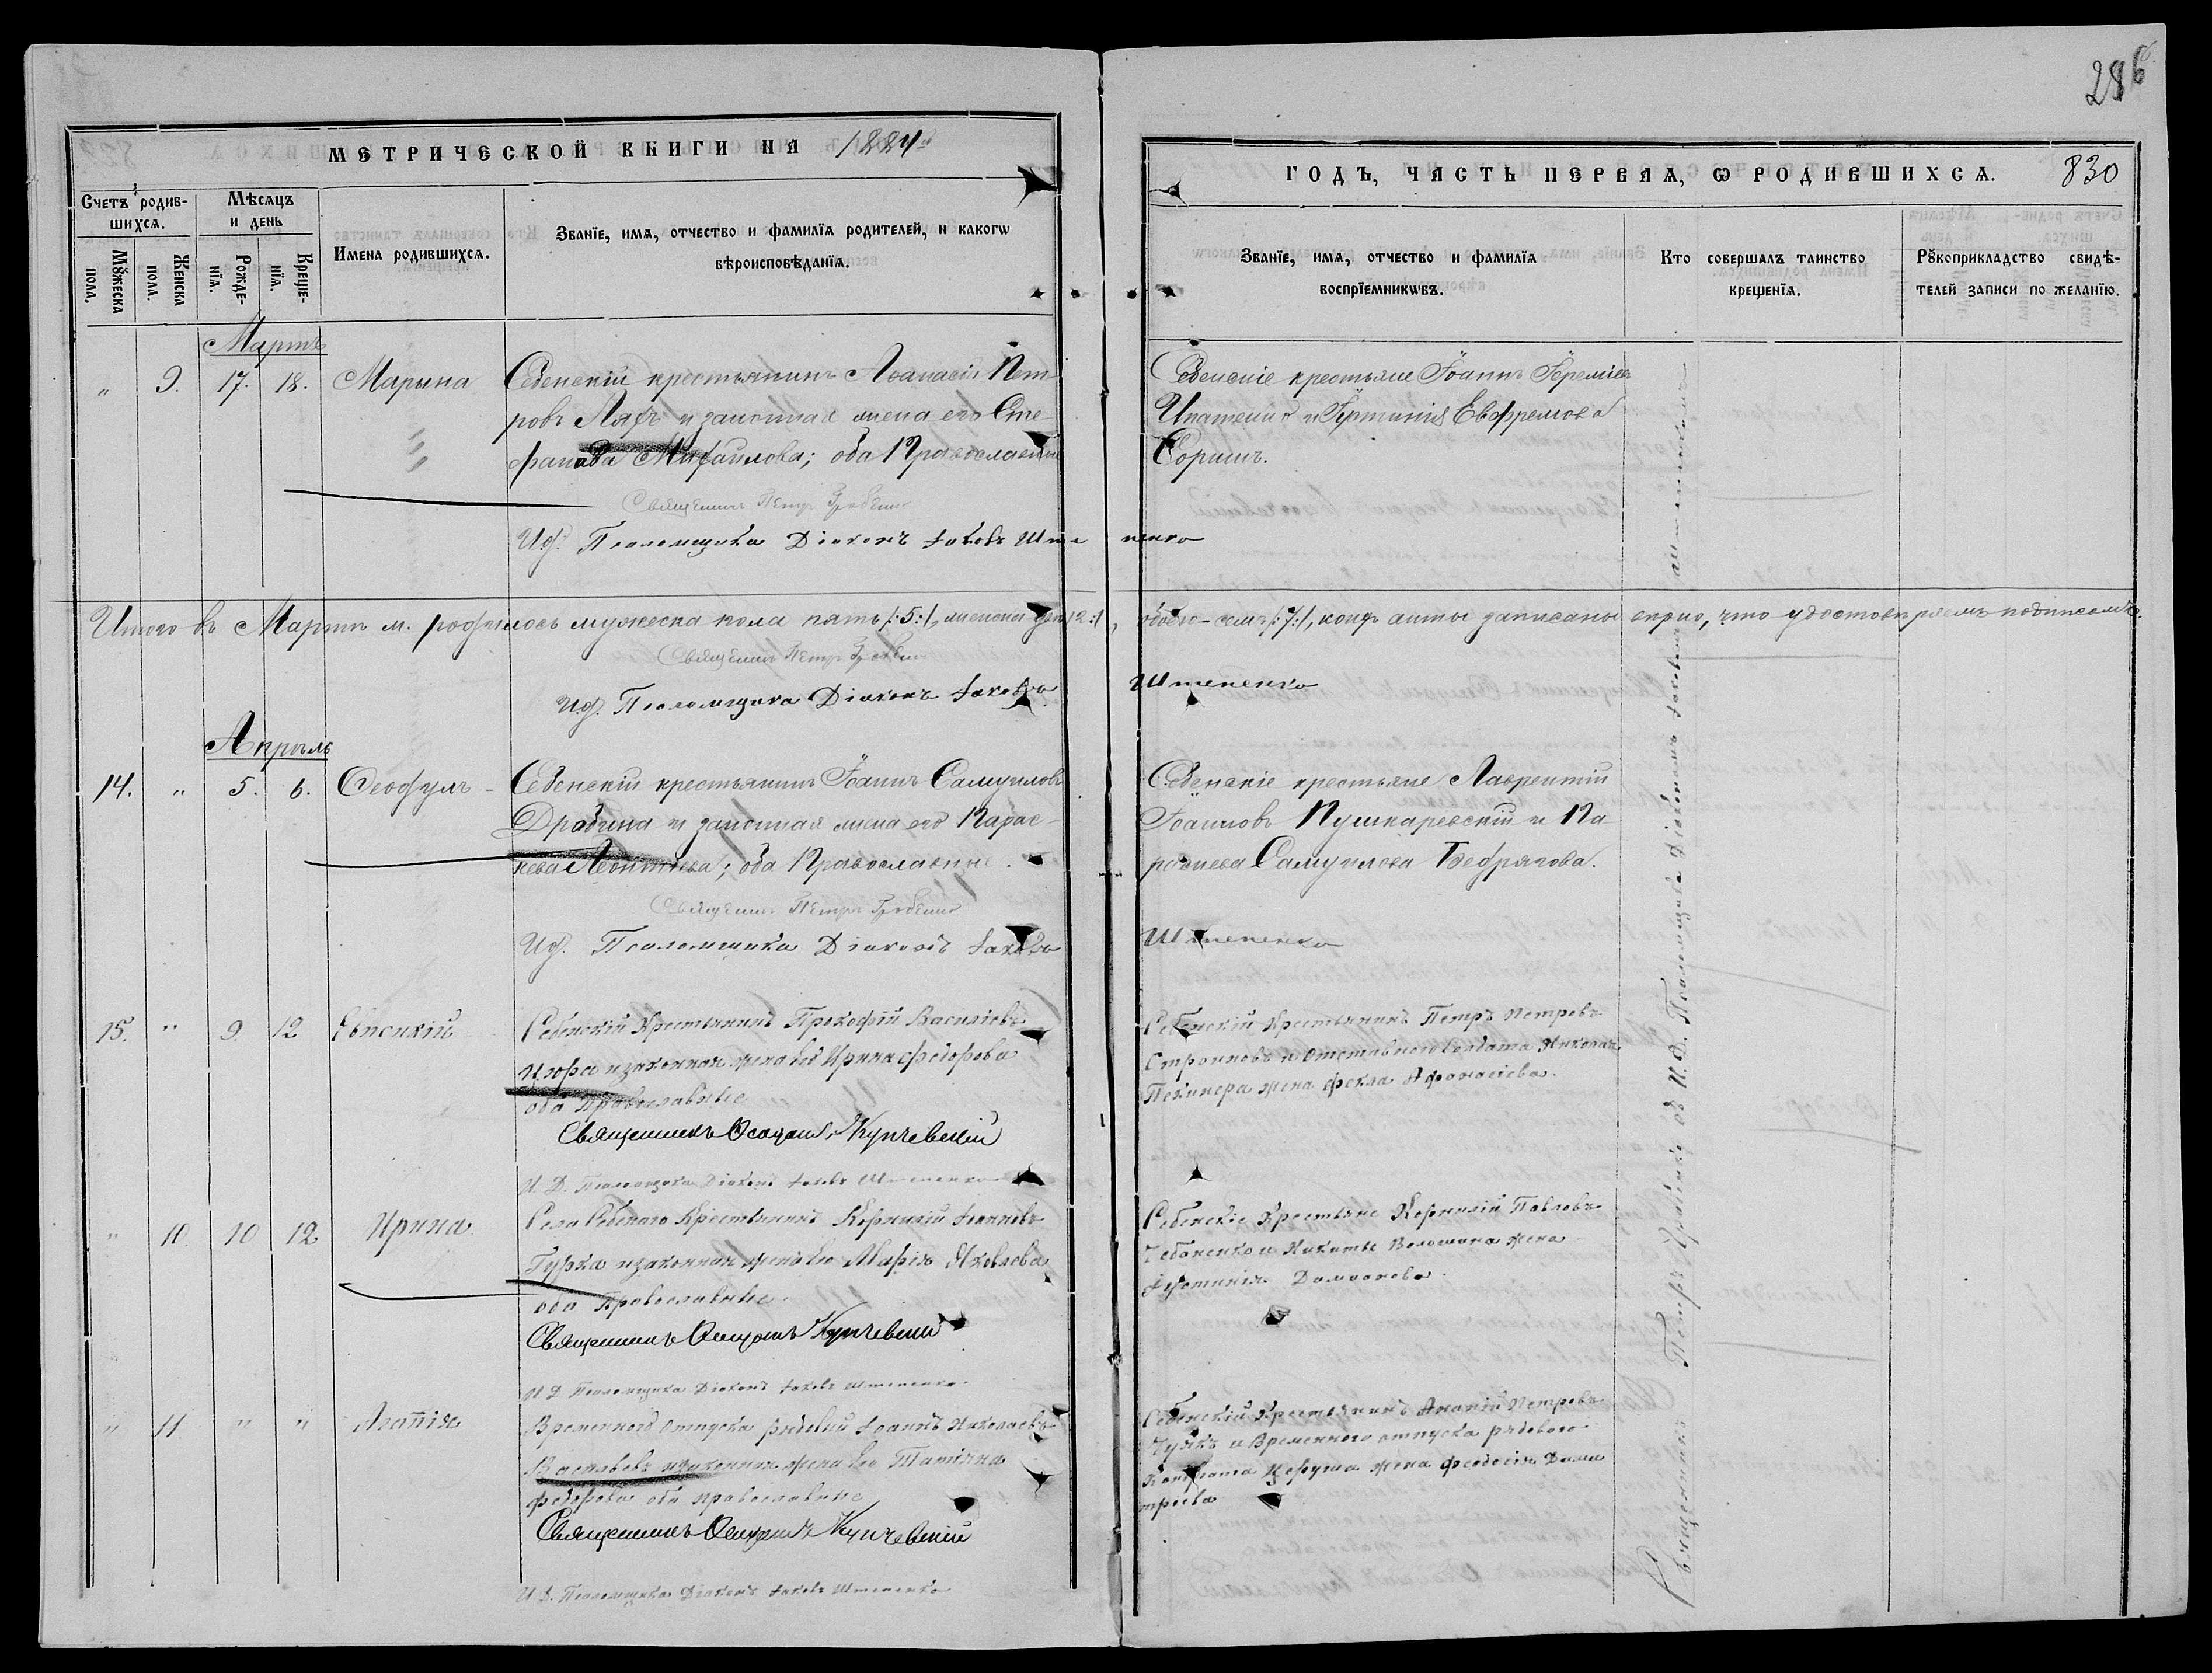 286
МЕТРИЧЕСКОЙ КНИГИ НА 1884й
ГОДЪ, ЧАСТЬ ПЕРВАЯ, Ѡ РОДИВШИХСЯ.
830
Счетъ родив-
шихся.
Мѣсяцъ
и день
Мꙋжеска
пола.
Женска
пола.
Рожде-
нїя.
Креще-
нїя.
Имена родившихся.
Званїе, имя, отчество и фамилїя родителей, и какогѡ
вѣроисповѣданїя.
Званїе, имя, отчество и фамилїя
воспрїемникѡвъ.
Кто совершалъ таинство
крещенїя.
Рꙋкоприкладство свидѣ-
телей записи по желанїю.
Мартъ
" 9. 17. 18. Марина
Себенскій крестьянинъ Аѳанасій Пет-
ровъ и законная жена его Сте-
Михаилова; оба Православные
Священникъ Петръ
И.д. Псаломщика Діаконъ Іаковъ Штепенко
Себенскіе крестьяне Іоаннъ Іереміевъ
и Евфремова
Итого въ Мартѣ м. родилось мужеска пола пять /:5:/, женска два /:2:/, обоего – семь /:7:/, коихъ акты записаны вѣрно, что удостовѣряемъ подписомъ.
Священникъ Петръ
И.д. Псаломщика Діаконъ Іаковъ Штепенко
Апрѣль
14. " 5. 6. Ѳеодулъ
Себенскій крестьянинъ Іоаннъ Самуиловъ
Драбина и законная жена его Парас-
кева Леонтіева; оба Православные.
Священникъ Петръ
И.д. Псаломщика Діаконъ Іаковъ Штепенко
Себенскіе крестьяне Лаврентій
Іоанновъ Пушкаревскій и Па-
раскева Самуилова Бедрягова.
15. " 9 12 Евпсихій
Себенскій Крестьянинъ Прокофій Василіевъ
Цюра и законная жена его Ирина Федорова
оба Православные
Священникъ Купчевскій
И.Д. Псаломщика Діаконъ Іаковъ Штепенко
Себенскій Крестьянинъ Петръ Петровъ
и Отставного Солдата Николая
жена Фекла Афонасіева.
" 10. 10 12 Ирина
Села Себеного Крестьянинъ Корнилій Іоанновъ
Гурка и законная жена его Марія Яковлева
оба Православные.
Священникъ Купчевскій
И.Д. Псаломщика Діаконъ Іаковъ Штепенко
Себенскіе Крестьяне Корнилій Павловъ
Чебаненко и Никиты Волошина жена
" 11 " " Агапія
Временного Отпуска рядовый Іоаннъ Николаевъ
и законная жена его Татіяна
Федорова оба православные
Священникъ Купчевскій
И.Д. Псаломщика Діаконъ Іаковъ Штепенко
Себенскій Крестьянинъ Ананій Петровъ
и Временного отпуска рядового
жена Феодосія Дими-
тріева
Священникъ Петръ съ И.д. Псаломщика Діакономъ Іаковомъ Штепенкомъ